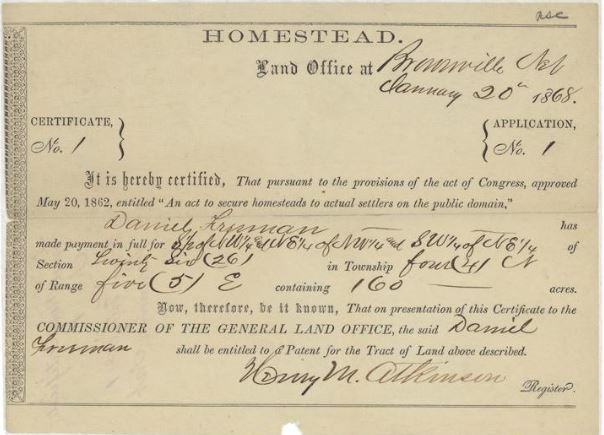 HOMESTEAD.
Land Office at Brownville Neb
January 20th 1868.
CERTIFICATE, No. 1 } { APPLICATION, No. 1
It is hereby certified, That pursuant to the provisions of the act of Congress, approved
May 20, 1862, entitled "An act to secure homesteads to actual settlers on the public domain,"
Daniel Freeman has
made payment in full for S½ of NW¼ & NE¼ of NW¼ and SW¼ of NE¼ of
Section Twenty Six (26) in Township four (4) N
of Range five (5) E containing 160 acres.
Now, therefore, be it known, That on presentation of this Certificate to the
COMMISSIONER OF THE GENERAL LAND OFFICE, the said Daniel
Freeman shall be entitled to a Patent for the Tract of Land above described.
Henry M. Atkinson
Register.